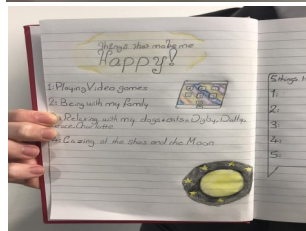 Things that make me
Happy!
1: Playing Video games
2: Being with my family
3: Relaxing with my dogs + cats + Digby, Dotty
Charlotte
4: Gazing at the stars and the Moon
5 things
1:
2:
3:
4:
5: